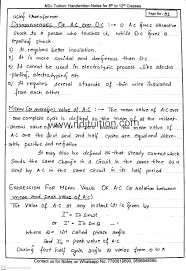 NDJ Tuition: Handwritten Notes for 8th to 12th Classes
using transformer.
Disadvantages Of AC over DC :- 1) AC gives attractive
shock to a person who touches it, while DC gives a
repelling shock.
2) It requires better insulation.
3) It is more suicidal and dangerous than DC.
4) It cannot be used in electrolytic process like electro-
plating, electrotyping etc
5) It requires several strands of thin wire insulated
from each other.
Mean (or average) value of AC :- The mean value of AC over
one complete cycle is defined as the
value of AC
are the first and 2nd half cycle, are equal and alter-
positive and negative.
It may also be defined as that steady current which
sends the same charge in a circuit in the same time as
is sent by AC in the same circuit in same half time
period.
Expression For Mean Value Of AC (or relation between
mean and peak value of AC)
The value of AC at any instant is given by
I = I₀ sinωt
or I = I₀ sinθ
where θ = ωt called phase angle
and I₀ = peak value of AC
During first half cycle angle θ varies from 0 to π
Contact us for Notes on WhatsApp No.